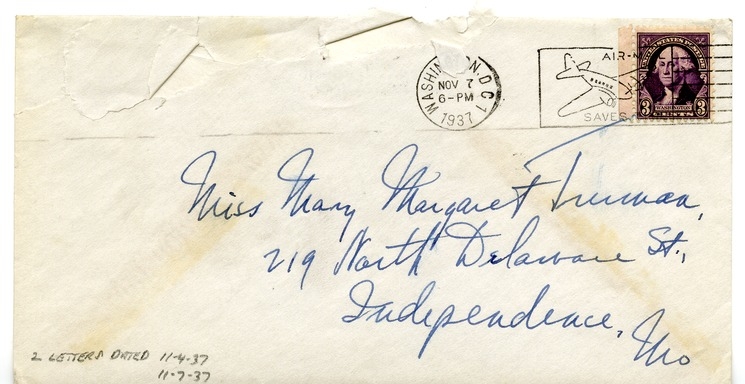 WASHINGTON, D.C. 1
NOV 7
6-PM
1937
AIR-M
SAVES
UNITED STATES POSTAGE
WASHINGTON
3 CENTS 3
Miss Mary Margaret Truman,
219 North Delaware St.,
Independence,
Mo
2 LETTERS DATED 11-4-37
11-7-37